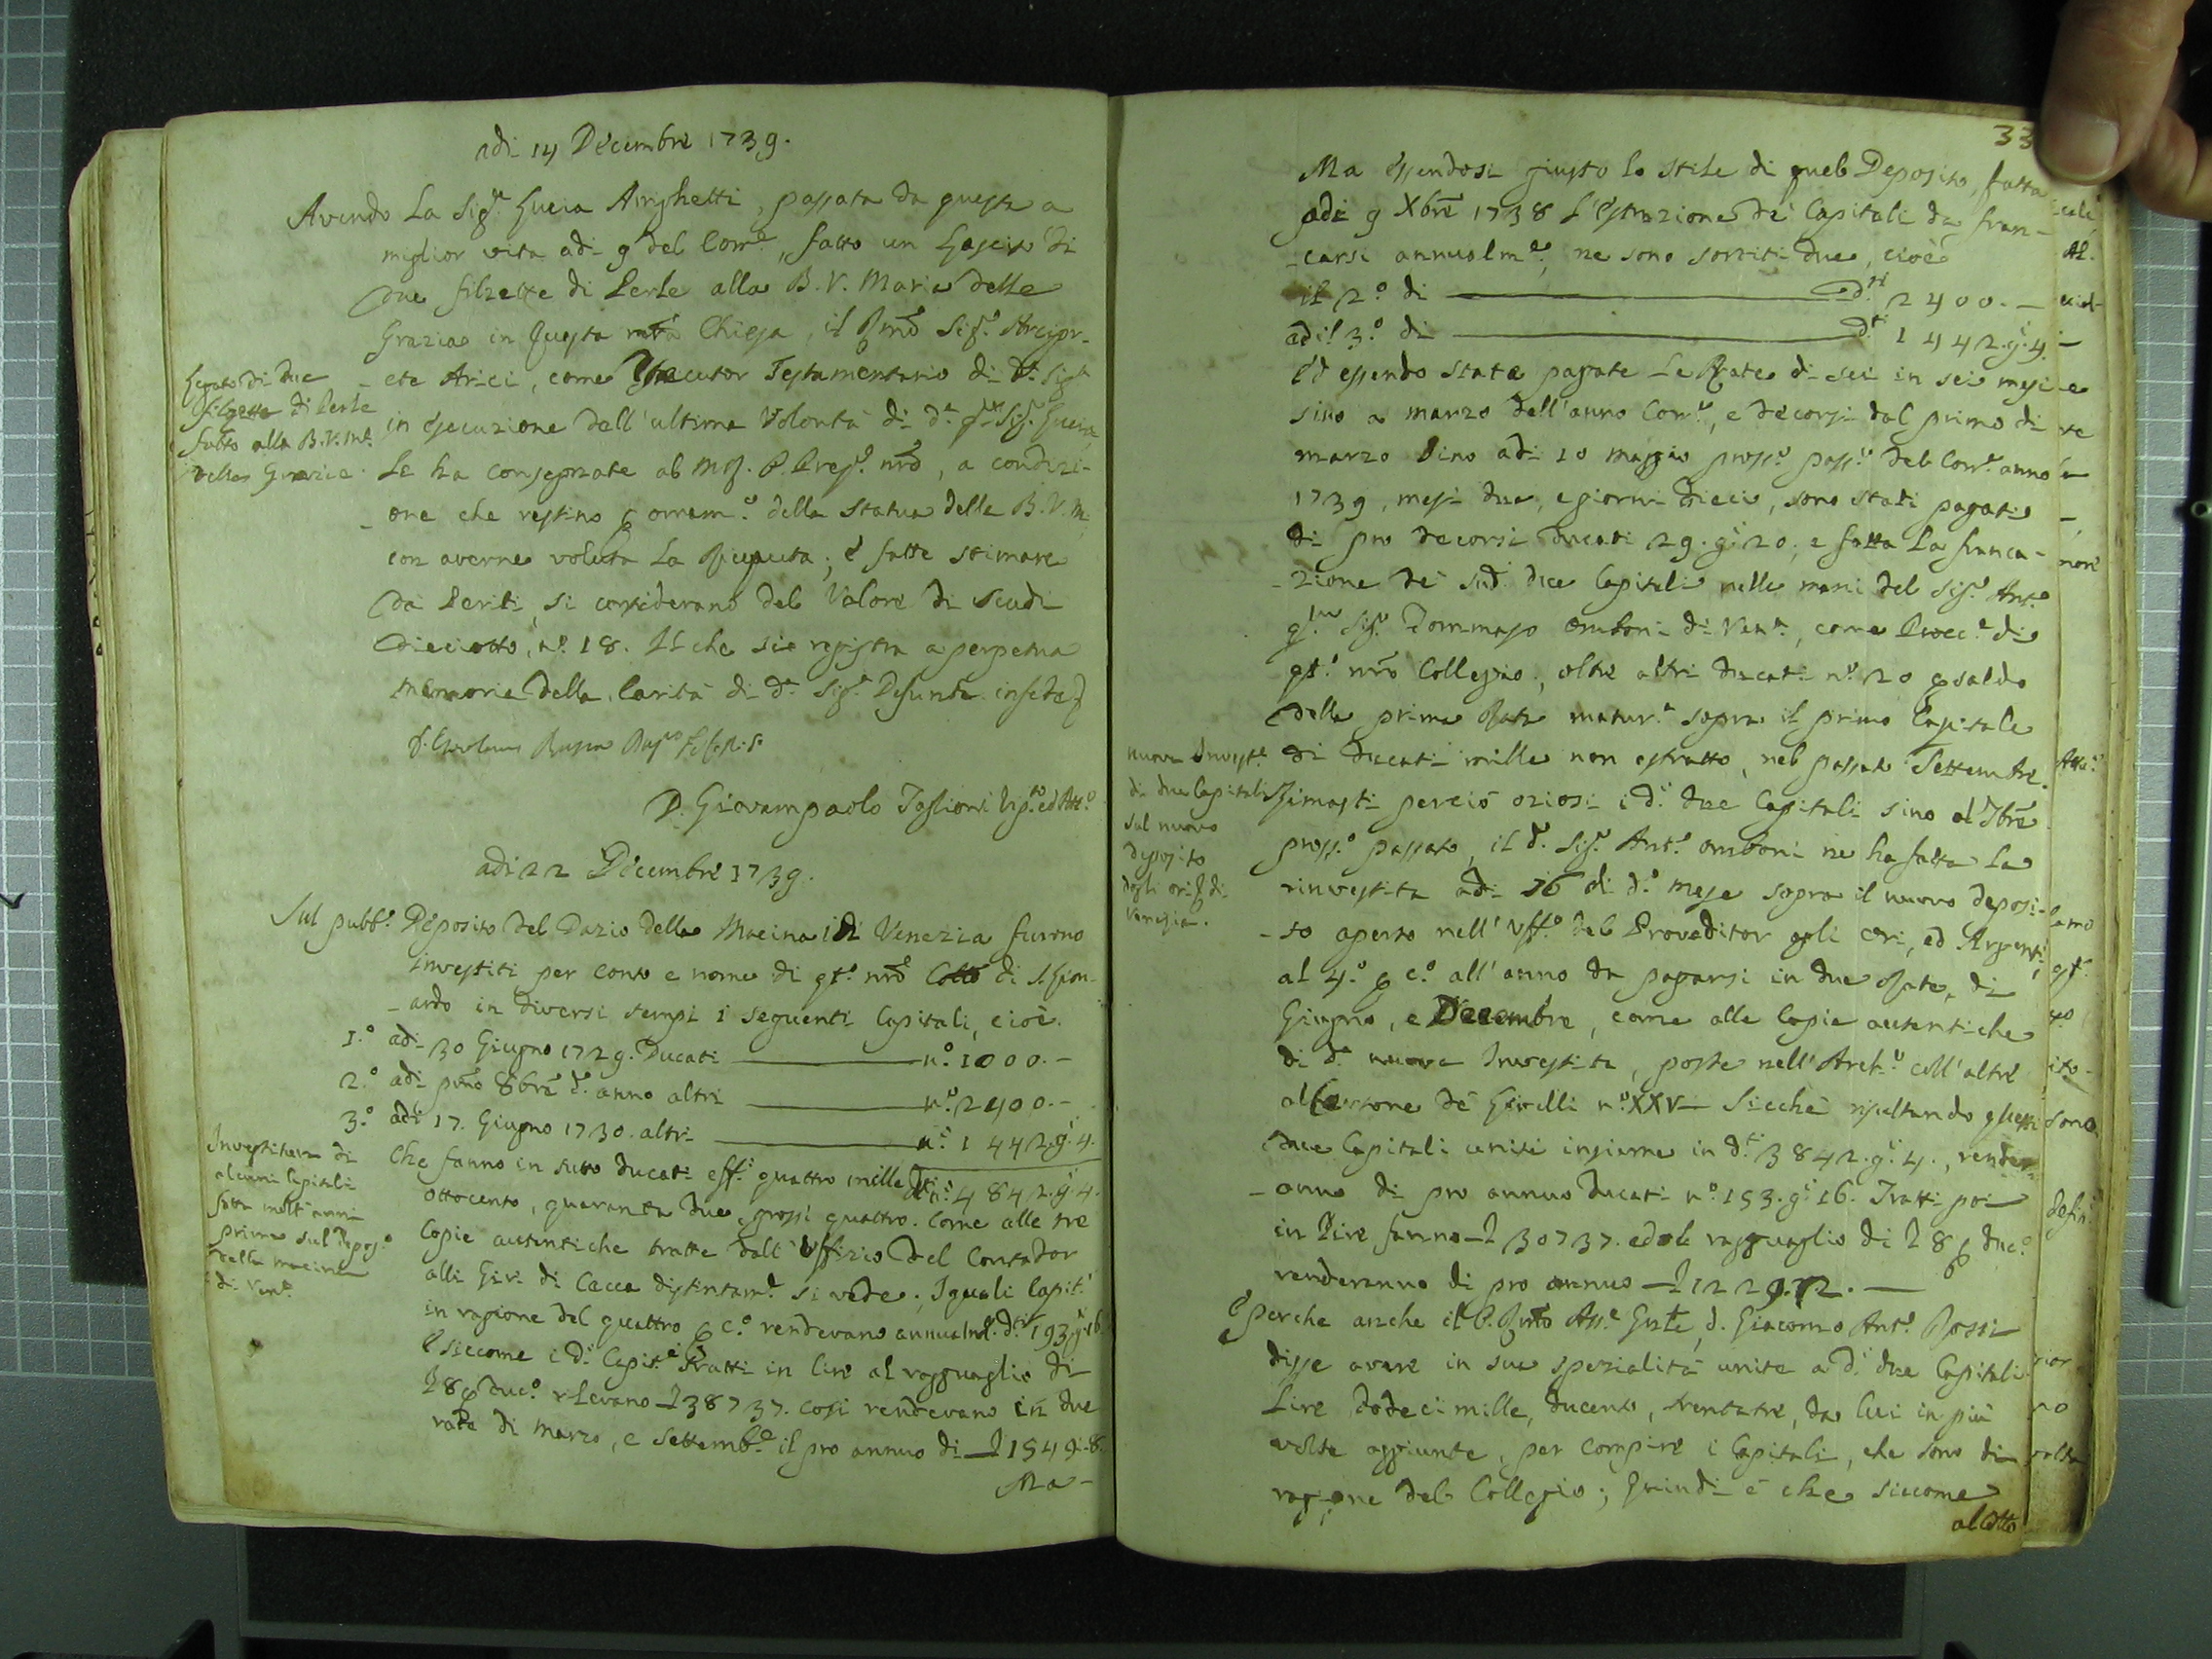 adi 14 Decembre 1739.
Avendo La Sig.ra Lucia Arighetti, passata da questa a
miglior vita adi 9 del Corr.e, fatto un Lascito di
due filzette di Perle alla B. V. Maria delle
Grazie in questa nrã Chiesa, il Rmõ Sig.r Arcipr-
-ete Arici, come Esecutor Testamentario di d.a Sig.ra
in esecuzione dell'ultima Volontà di d.a Sig.ra Lucia
Le ha consegnate al M. P. Prep.o nrõ, a condizi-
-one che restino p ornam.o della Statua della B. V. M.
con averne voluta La Riceputa; e fatte stimare
da Periti, si considerano del Valore di Scudi
dieciotto, n.o 18. Il che sie registra a perpetua
memoria della Carità di d.a Sig.ra Defunta. in fede
D. Giovampaolo Taglioni Vip.to ed Att.o
Legato di due
filzette di Perle
fatto alla B. V. M.a
delle Grazie.
adi 22 Decembre 1739.
Sul pubb.o Deposito del Dazio della Macina di Venezia furono
investiti per conto e nome di qt.o nrõ Coll.o di S. Lion-
-ardo in diversi tempi i seguenti Capitali, cioè.
1.o adi 30 Giugno 1729. Ducati n.o 1000.-
2.o adi pmõ 8brẽ d.o anno altri n.o 2400.-
3.o adi 17. Giugno 1730. altri n.o 1442. g.i 4.
Che fanno in tutto ducati eff.i quattro mille n.o 4842. g.i 4.
ottocento, quaranta due, grossi quattro. Come alle tre
Copie autentiche tratte dall'Uffizio del Contador
alli Giri di Cecca distintam.e si vede; I quali Capit.i
in ragione del quattro p c.o rendevano annualm.e d.ti 193. g.i 16
E siccome i d.i Capit.i tratti in lire al ragguaglio di
L 8 p duc.o rilevano L 38737. così rendevano in due
rate di Marzo, e Settemb.e il pro annuo di L 1549:8.
Ma-
Investitura di
alcuni Capitali
fatta molt'anni
prima sul Depos.o
della macina
di Ven.a
33
Ma essendosi giusto lo stile di quel Deposito, fatta
adi 9 Xbrẽ 1738 L'estrazione de' Capitali da fran-
-carsi annualm.e, ne sono sortiti due, cioè
il 2.o di d.ti 2400.-
ad il 3.o di d.ti 1442. g.i 4.
Ed essendo state pagate Le Rate di sei in sei mesi
sino a marzo dell'anno Corr.e, e decorsi dal primo di
marzo sino adi 10 maggio pross.o pass.o del Corr.e anno
1739, mesi due, e giorni dieci, sono stati pagati
di pro decorsi ducati 29. g.i 20; e fatta La franca-
-zione de' sud.i due Capitali nelle mani del Sig.r Ant.o
q.m Sig.r Tommaso Omboni di Ven.a, come Procc.e di
qt.o nrõ Collegio, oltre altri ducati n.o 20 p saldo
della prima Rata matur.a sopra il primo Capitale
di ducati mille non estratto, nel passato Settembre.
Rimasti perciò oziosi i d.i due Capitali sino al 7brẽ
pross.o passato, il d.o Sig.r Ant.o Omboni ne ha fatta La
rinvestita adi 16 di d.o mese sopra il nuovo deposi-
-to aperto nell'Uff.o del Proveditor agli Ori, ed Argenti,
al 4.o p c.o all'anno da pagarsi in due Rate, di
Giugno, e Decembre, come alle Copie autentiche
di d.a nuova Investita, poste nell'Arch.o coll'altre
al Cartone de' Livelli n.o XXV. Sicchè risultando questi
due Capitali uniti insieme in d.ti 3842. g.i 4., rende-
-anno di pro annuo ducati n.o 153. g.i 16. Tratti poi
in Lire fanno L 30737. ed al ragguaglio di L 8 p duc.o
renderanno di pro annuo L 1229.
E perche anche il P. D. Giacomo Ant.o Rossi
disse avere in sua spezialità unite a d.i due Capitali
Lire dodeci mille, ducento, trentatre, da lui in più
volte aggiunte, per compire i Capitali, che sono di
ragione del Collegio; Quindi è che siccome
al Coll.o
nuova Invest.a
di due Capitali
sul nuovo
deposito
degli ori di
Venezia.